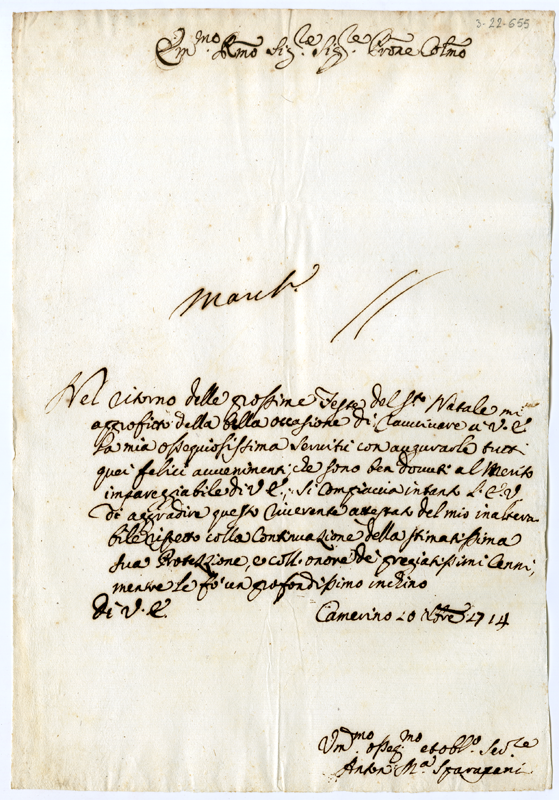 3-22-655
Em.mo Rmo Sig.re Sig.re Prone Colmo
March.
Nel ritorno delle prossime Feste del S.to Natale mi
approfitto della bella occasione di ravvivare a V. E.
la mia ossequiosissima servitù con augurarle tutti
quei felici avvenimenti che sono ben dovuti al Merito
impareggiabile di V. E., si compiaccia intanto l'E. V.
di aggradire questo riverente attestato del mio inaltera-
bile rispetto colla Continuazione della stimatissima
sua Protezzione, e coll'onore de' pregiatissimi Cenni,
mentre le fò un profondissimo inchino
di V. E.
Camerino 10 Xbre 1714
Vm.mo osseq.mo et obl.o Ser.re
Anton M.a Sparapani